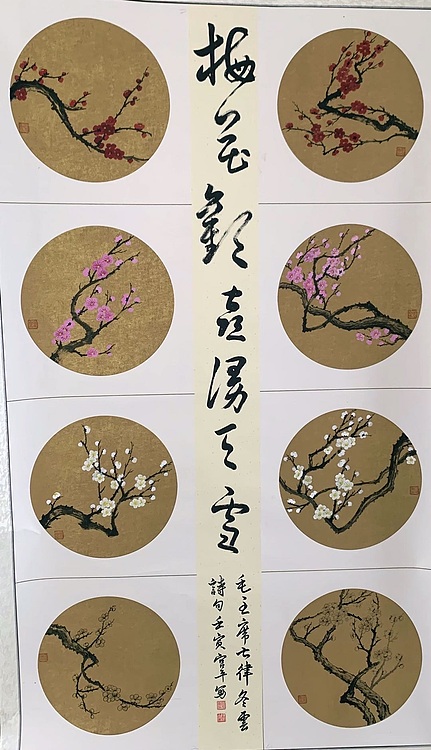 梅花歡喜漫天雪
毛主席七律冬雲
詩句壬寅宫平寫